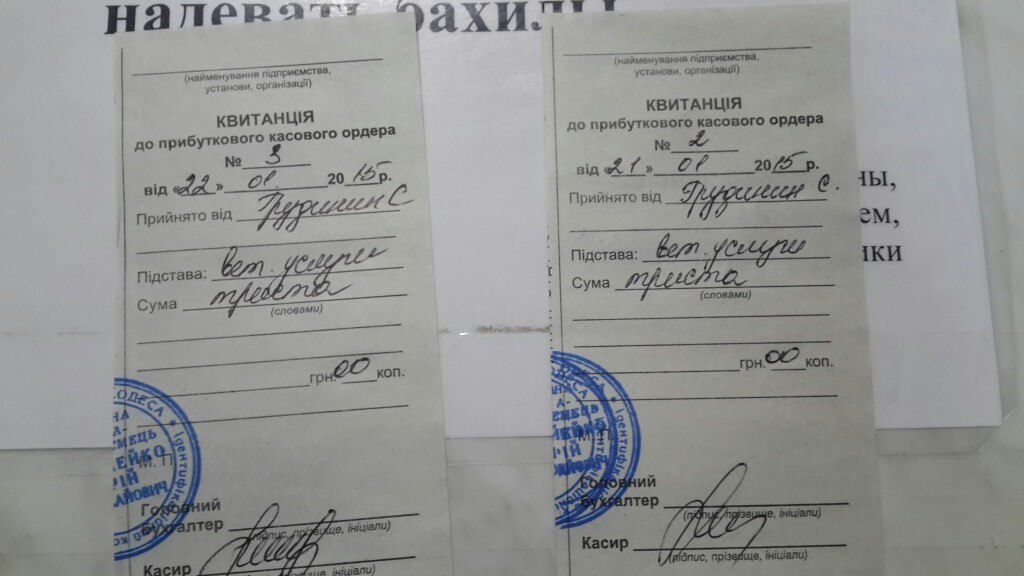 надевать бахилы
ны,
ем,
ики
(найменування підприємства,
установи, організації)
КВИТАНЦІЯ
до прибуткового касового ордера
№ 3
від «22» 01 2015 р.
Прийнято від Грудинин С
Підстава: вет. услуги
Сума триста
(словами)
грн. 00 коп.
ОДЕСА * Ідентифік
НА
ЕМЕЦЬ
ЕЙКО
РІЙ
АЙОВИЧ
М. П.
Головний
бухгалтер
(підпис, прізвище, ініціали)
Касир
(підпис, прізвище, ініціали)
(найменування підприємства,
установи, організації)
КВИТАНЦІЯ
до прибуткового касового ордера
№ 2
від «21» 01 2015 р.
Прийнято від Грудинин С.
Підстава: вет. услуги
Сума триста
(словами)
грн. 00 коп.
М. П.
Головний
бухгалтер
(підпис, прізвище, ініціали)
Касир
(підпис, прізвище, ініціали)